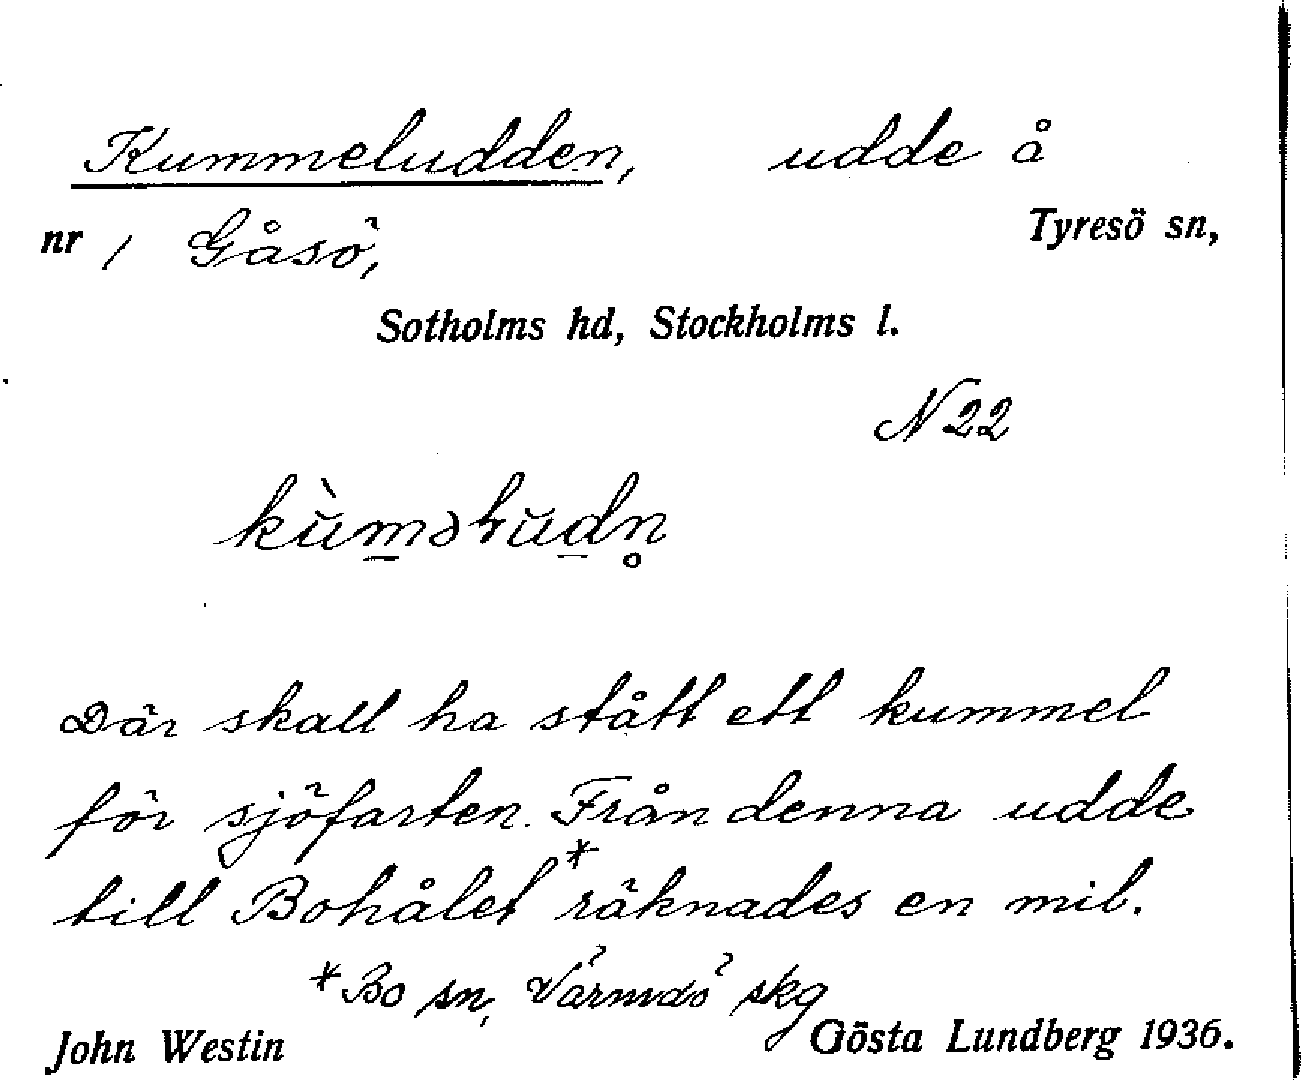 Kummeludden, udde å
nr 1 Gåsö, Tyresö sn,
Sotholms hd, Stockholms l.
N 22
Där skall ha stått ett kummel
för sjöfarten. Från denna udde
till Bohålet* räknades en mil.
*Bo sn, Värmdö skg
John Westin Gösta Lundberg 1936.